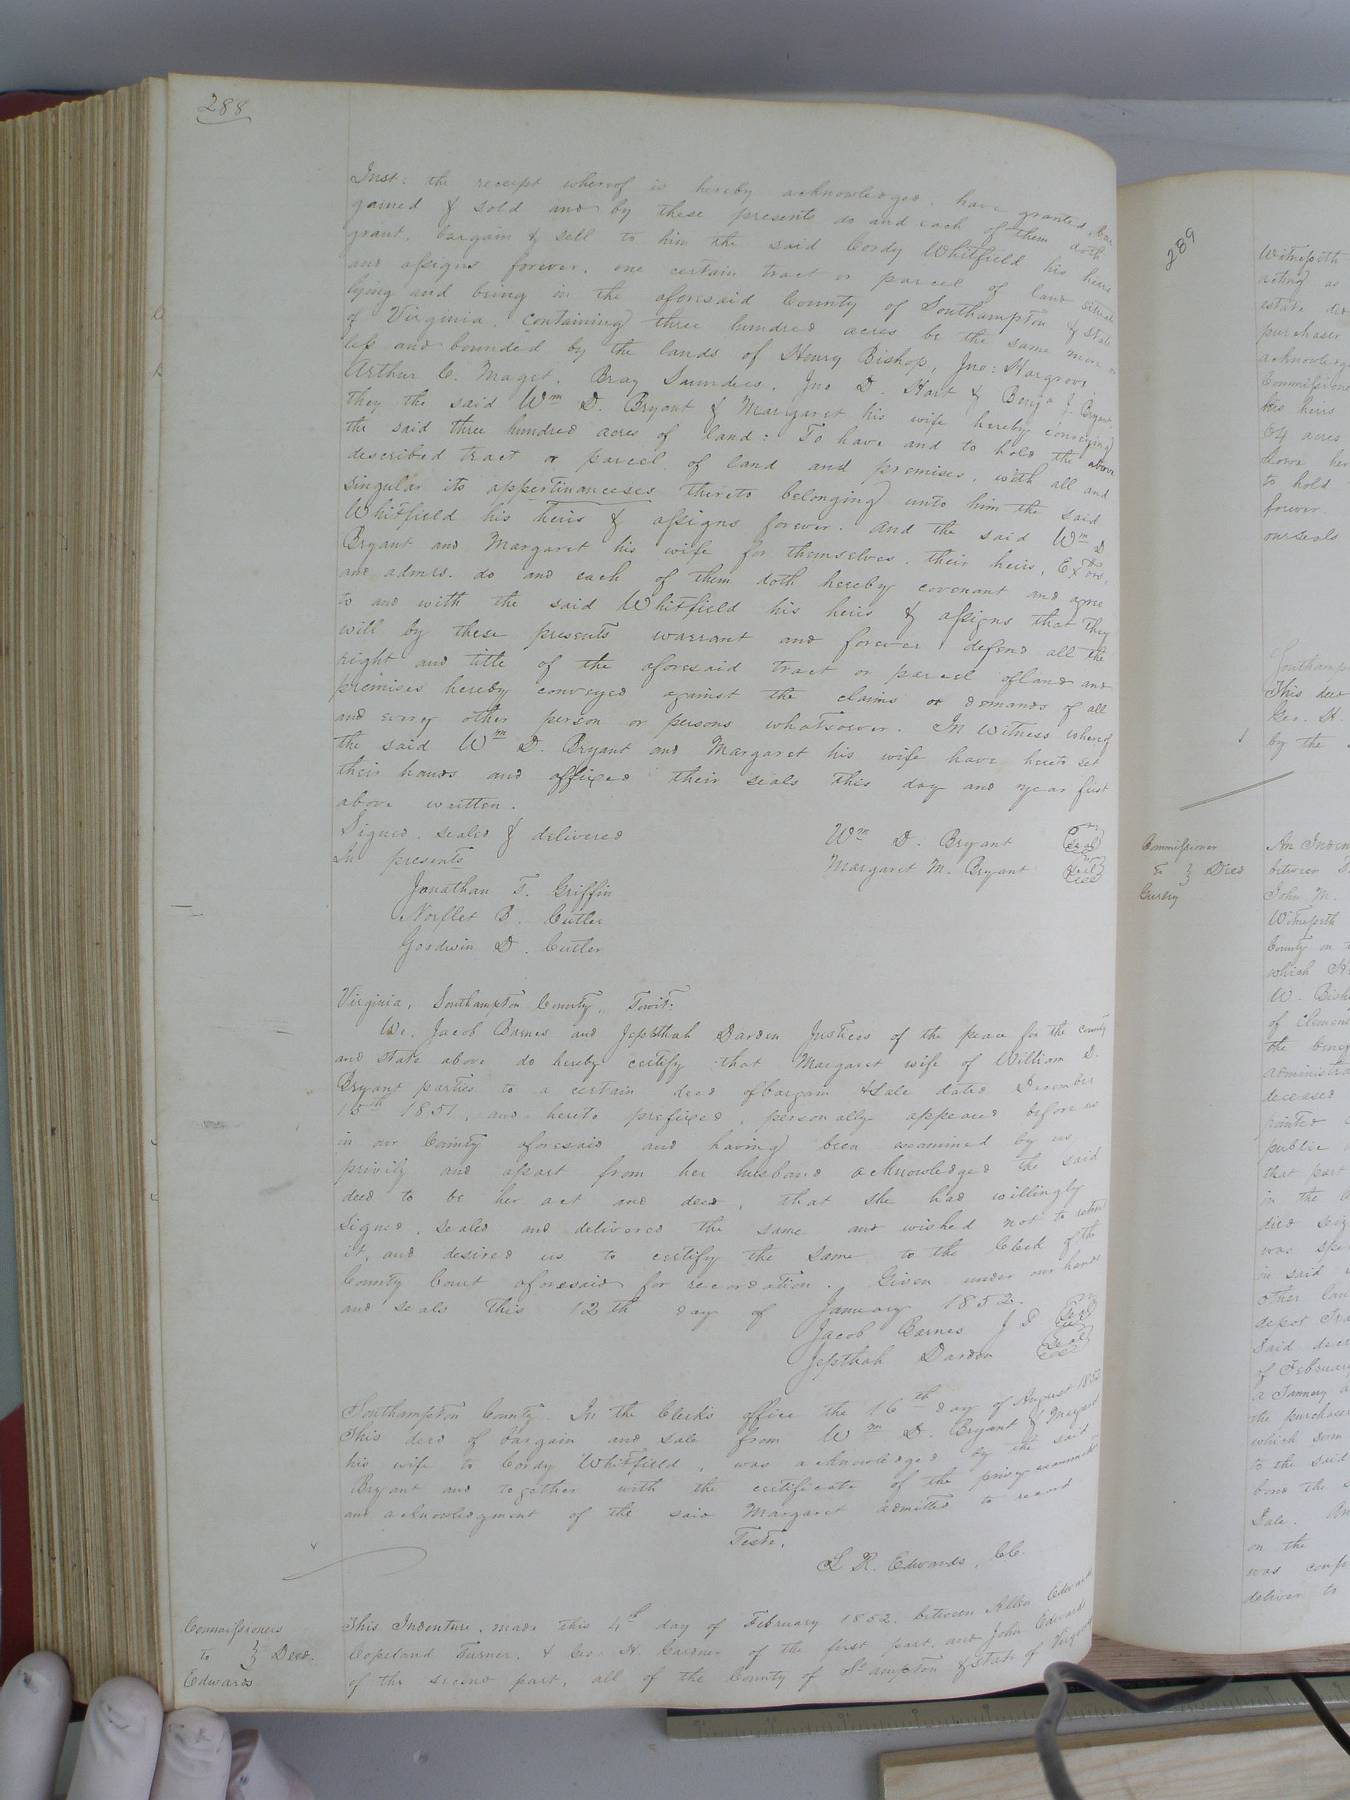 288
Inst: the receipt whereof is hereby acknowledged, have granted, bar
gained & sold and by these presents do and each of them doth
grant, bargain & sell to him the said Cordy Whitfield his heirs
and assigns forever, one certain tract or parcel of land situate
lying and being in the aforesaid County of Southampton & State
of Virginia, containing three hundred acres be the same more or
less and bounded by the lands of Henry Bishop, Jno: Hargrove,
Arthur C. Maget, Bray Saunders, Jno D. Hart & Benja J. Bryant,
they the said Wm D. Bryant & Margaret his wife hereby conveying
the said three hundred acres of land: To have and to hold the above
described tract or parcel of land and premises, with all and
singular its appertinanceses thereto belonging unto him the said
Whitfield his heirs & assigns forever. And the said Wm D
Bryant and Margaret his wife for themselves, their heirs, Exors,
and admrs. do and each of them doth hereby covenant and agree
to and with the said Whitfield his heirs & assigns that they
will by these presents warrant and forever defend all the
right and title of the aforesaid tract or parcel of land and
premises hereby conveyed against the claims or demands of all
and every other person or persons whatsoever. In Witness whereof
the said Wm D. Bryant and Margaret his wife have hereto set
their hands and affixed their seals this day and year first
above written.
Signed, sealed & delivered Wm D. Bryant Seal
In presents Margaret M. Bryant Seal
Jonathan T. Griffin
Norflet B. Cutler
Goodwin D. Cutler
Virginia, Southampton County, Towit:
We, Jacob Barnes and Jepthah Darden Justices of the peace for the county
and state above do hereby certify that Margaret wife of William D.
Bryant parties to a certain deed of bargain & Sale dated December
15th 1851, and hereto prefixed, personally appeared before us
in our County aforesaid and having been examined by us
privily and apart from her husband acknowledged the said
deed to be her act and deed, that she had willingly
signed, sealed and delivered the same and wished not to retract
it, and desired us to certify the same to the Clerk of the
County Court aforesaid for recordation. Given under our hands
and seals this 12th day of January 1852.
Jacob Barnes J P Seal
Jepthah Darden Seal
Southampton County. In the Clerk's office the 16th day of August 1852
This deed of bargain and sale from Wm D. Bryant & Margaret
his wife to Cordy Whitfield, was acknowledged by the said
Bryant and together with the certificate of the privy examination
and acknowledgment of the said Margaret admitted to record
Teste,
L R. Edwards, CC.
Commissioners
to } Deed.
Edwards
This Indenture, made this 4th day of February 1852, between Allen Edwards
Copeland Turner, & Geo. H. Gardner of the first part, and John Edwards
of the second part, all of the County of St ampton & State of Virginia
289
Witnesseth
acting as
estate
purchaser
acknowledge
Commissione
his heirs
64 acres
to hold
forever.
our seals
Southamp
This deed
Geo. H.
by the
Commissioner
to } Deed
Gurley
An Inden
between
John M.
Witnesseth
County on
which
W. Bish
of Clemen
the
administra
deceased
public
that part
in the
died seiz
was
in said
other lan
depot
Said
of February
a Tannery
the purchaser
which
to the said
bond the
Sale.
on the
was
deliver to